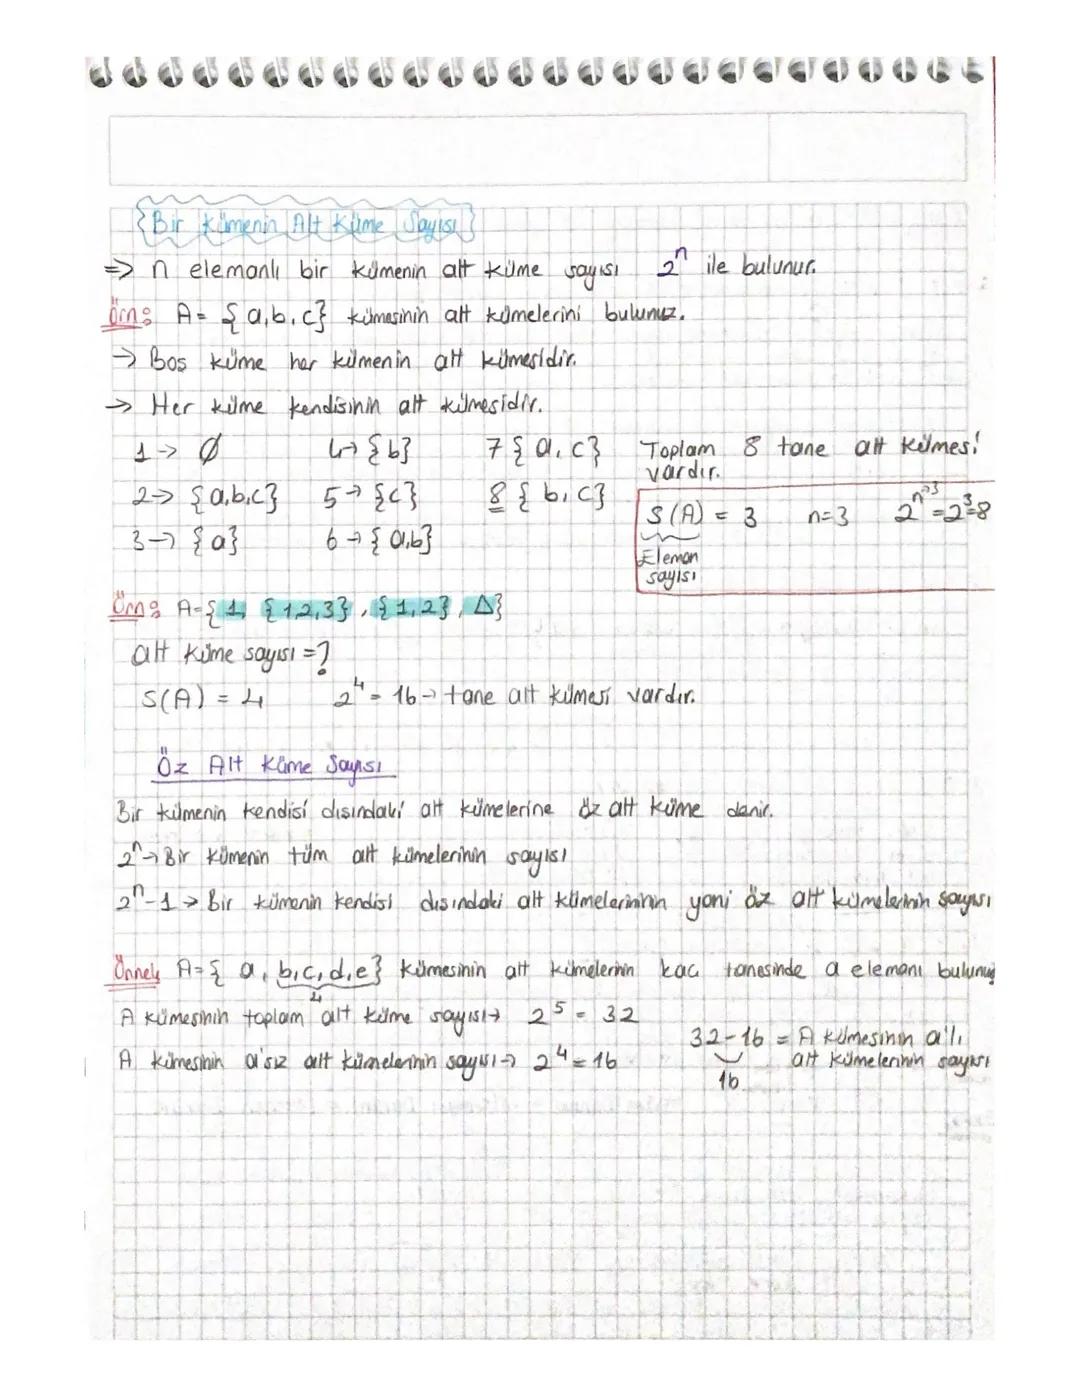 Bir Kümenin Alt Küme Sayısı
=> n elemanlı bir kümenin alt küme sayısı 2ⁿ ile bulunur.
Örn: A= {a,b,c} kümesinin alt kümelerini bulunuz.
→ Boş küme her kümenin alt kümesidir.
→ Her küme kendisinin alt kümesidir.
1 → Ø 4→ {b} 7 {a, c} Toplam 8 tane alt kümesi
vardır.
2→ {a,b,c} 5→ {c} 8 {b, c}
S(A) = 3 n=3 2ⁿ→³=2³=8
3→ {a} 6→ {a,b}
Eleman
sayısı
Örn: A={1, {1,2,3}, {1,2}, Δ}
alt küme sayısı =?
S(A) = 4 2⁴ = 16 → tane alt kümesi vardır.
Öz Alt Küme Sayısı
Bir kümenin kendisi dışındaki alt kümelerine öz alt küme denir.
2ⁿ→ Bir Kümenin tüm alt kümelerinin sayısı
2ⁿ-1 → Bir kümenin kendisi dışındaki alt kümelerininin yani öz alt kümelerinin sayısı
Örnek A={a, b,c,d,e} kümesinin alt kümelerinin kaç tanesinde a elemanı bulunur
4
A kümesinin toplam alt küme sayısı→ 2⁵ = 32
32-16 = A kümesinin a'lı
A kümesinin a'sız alt kümelerinin sayısı→ 2⁴ = 16
alt kümelerinin sayısı
16